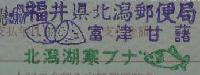 福井県北潟郵便局
富津甘藷
北潟湖寒ブナ